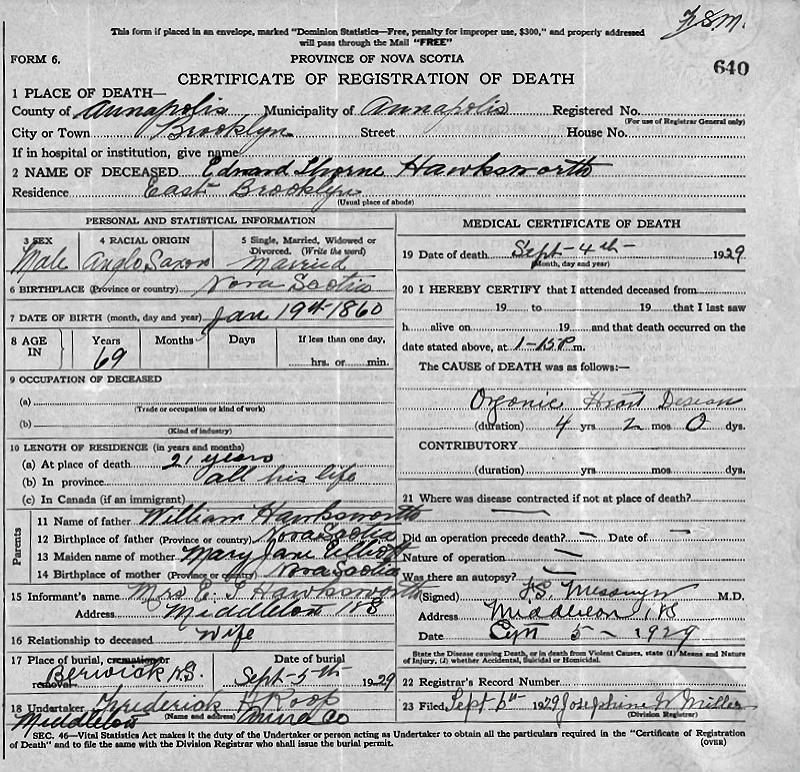 F.S.M.
This form if placed in an envelope, marked "Dominion Statistics—Free, penalty for improper use, $300," and properly addressed
will pass through the Mail "FREE"
FORM 6.
PROVINCE OF NOVA SCOTIA
640
CERTIFICATE OF REGISTRATION OF DEATH
1 PLACE OF DEATH—
County of Annapolis Municipality of Annapolis Registered No.
(For use of Registrar General only)
City or Town Brooklyn Street House No.
If in hospital or institution, give name
2 NAME OF DECEASED Edward Thorne Hawksworth
Residence East Brooklyn
(Usual place of abode)
PERSONAL AND STATISTICAL INFORMATION
3 SEX 4 RACIAL ORIGIN 5 Single, Married, Widowed or
Divorced. (Write the word)
Male Anglo Saxon Married
6 BIRTHPLACE (Province or country) Nova Scotia
7 DATE OF BIRTH (month, day and year) Jan 19th 1860
8 AGE IN Years Months Days If less than one day,
69 hrs. or min.
9 OCCUPATION OF DECEASED
(a)
(Trade or occupation or kind of work)
(b)
(Kind of industry)
10 LENGTH OF RESIDENCE (in years and months)
(a) At place of death 21 years
(b) In province all his life
(c) In Canada (if an immigrant)
Parents
11 Name of father William Hawksworth
12 Birthplace of father (Province or country) Nova Scotia
13 Maiden name of mother Mary Jane Elliott
14 Birthplace of mother (Province or country) Nova Scotia
15 Informant's name Mrs E. T Hawksworth
Address Middleton
16 Relationship to deceased wife
17 Place of burial, cremation or Date of burial
removal Berwick N.S. Sept-5th 1929
18 Undertaker Frederick H Roop
(Name and address)
Middleton
MEDICAL CERTIFICATE OF DEATH
19 Date of death Sept-4th- 1929
(Month, day and year)
20 I HEREBY CERTIFY that I attended deceased from
19 to 19 that I last saw
h alive on 19 and that death occurred on the
date stated above, at 1-15P m.
The CAUSE of DEATH was as follows:—
Organic Heart Disease
(duration) 4 yrs 2 mos 0 dys.
CONTRIBUTORY
(duration) yrs. mos. dys.
21 Where was disease contracted if not at place of death?
—
Did an operation precede death? — Date of —
Nature of operation —
Was there an autopsy? —
(Signed) F.S. Messenger M.D.
Address Middleton NS
Date Sept 5 - 1929
State the Disease causing Death, or in death from Violent Causes, state (1) Means and Nature
of Injury, (2) whether Accidental, Suicidal or Homicidal.
22 Registrar's Record Number
23 Filed Sept 1929 Josephine W Miller
(Division Registrar)
SEC. 46—Vital Statistics Act makes it the duty of the Undertaker or person acting as Undertaker to obtain all the particulars required in the "Certificate of Registration
of Death" and to file the same with the Division Registrar who shall issue the burial permit.
(OVER)